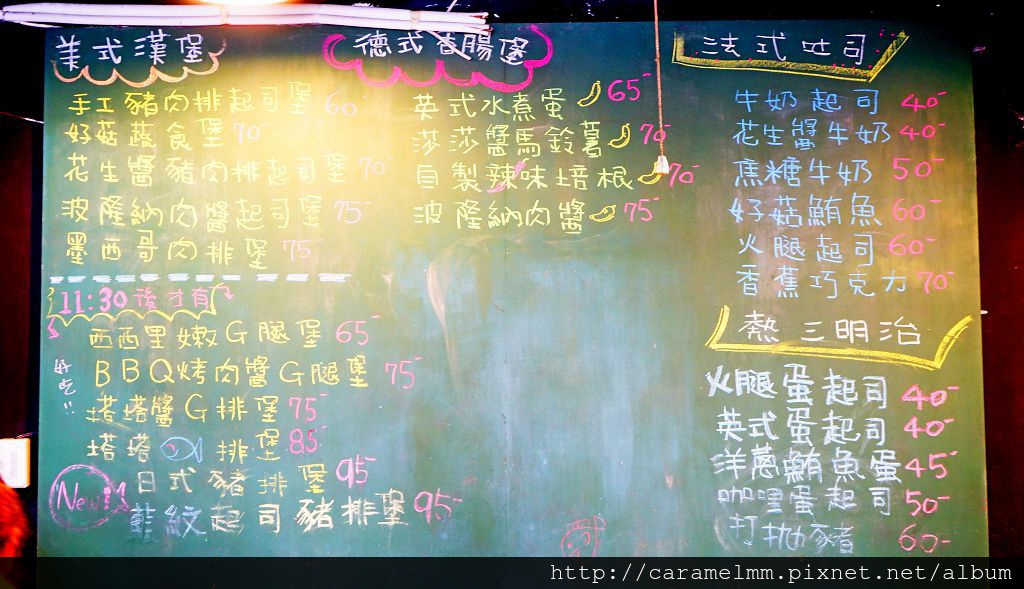 美式漢堡
手工豬肉排起司堡 60-
好菇蔬食堡 70-
花生醬豬肉排起司堡 70-
波隆納肉醬起司堡 75-
墨西哥肉排堡 75-
11:30後才有
好吃!!
西西里嫩G腿堡 65-
BBQ烤肉醬G腿堡 75-
塔塔醬G排堡 75-
塔塔 排堡 85-
日式豬排堡 95-
New!!
菲紋起司豬排堡 95-
德式香腸堡
英式水煮蛋 65-
莎莎醬馬鈴薯 70-
自製辣味培根 70-
波隆納肉醬 75-
法式吐司
牛奶起司 40-
花生醬牛奶 40-
焦糖牛奶 50-
好菇鮪魚 60-
火腿起司 60-
香蕉巧克力 70-
熱三明治
火腿蛋起司 40-
英式蛋起司 40-
洋蔥鮪魚蛋 45-
咖哩蛋起司 50-
打拋豬 60-
http://caramelmm.pixnet.net/album